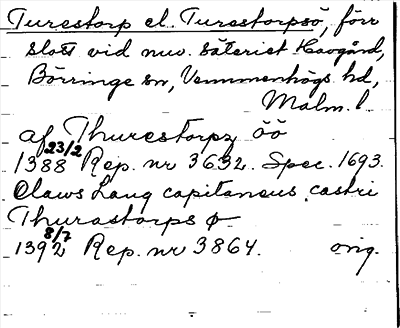 Turestorp el. Turestorpsö, förr
slott vid nuv. säteriet Havgård,
Börringe sn, Vemmenhögs hd,
Malm. l.
af Thurestorpz öö
1388 23/2 Rep. nr 3632. Spec. 1693.
Claws Lang capitaneus castri
Thurastorps ø
1392 8/7 Rep. nr 3864. orig.